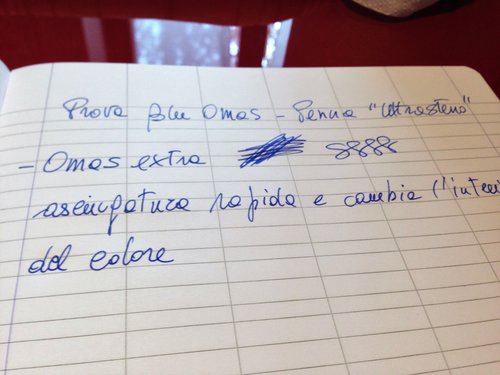 Prova blu Omas - Penna "Ultrasteno"
- Omas extra 8888
asciugatura rapida e cambia l'inten
del colore